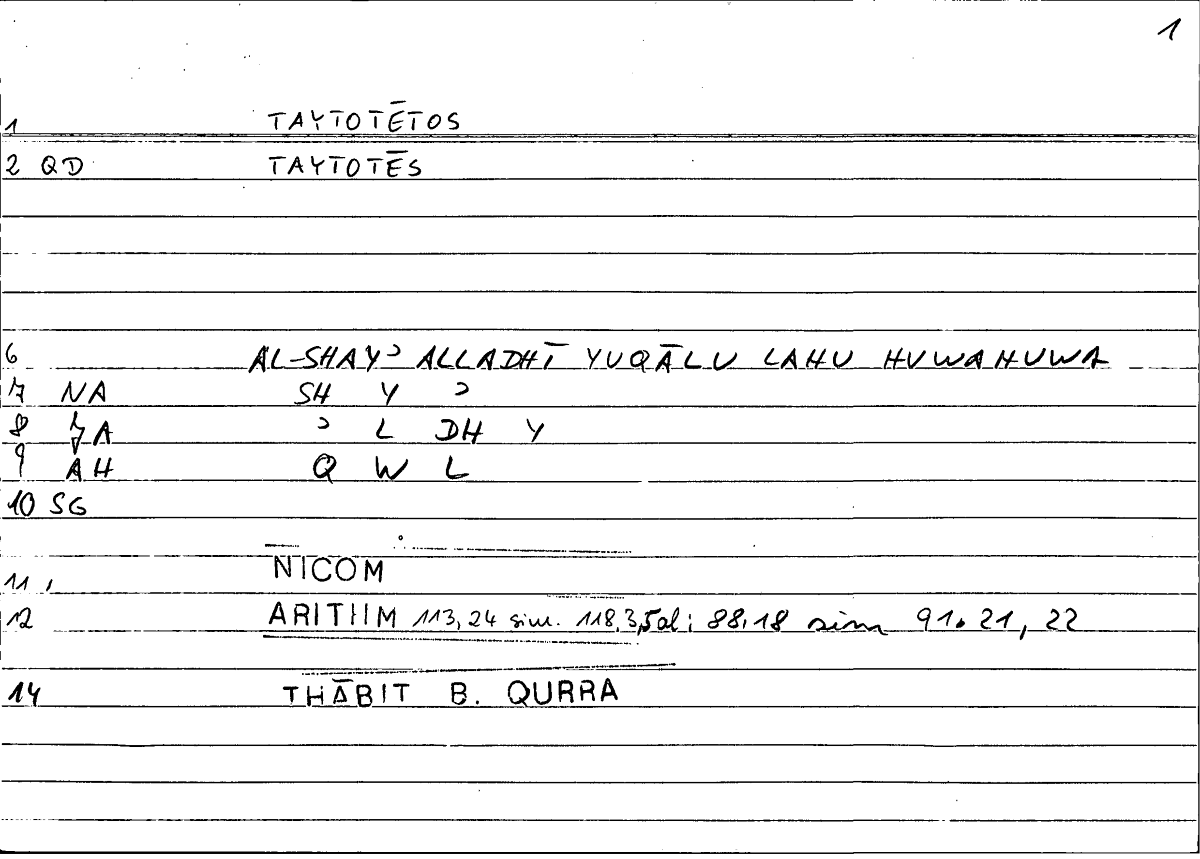 1
1 TAYTOTĒTOS
2 QD TAYTOTĒS
6 AL-SHAYʾ ALLADHĪ YUQĀLU LAHU HUWAHUWA
7 NA SH Y ʾ
8 ʾ L DH Y
9 AH Q W L
10 SG
11 NICOM
12 ARITHM 113,24 sim. 118,3,5al; 88,18 sim 91.21,22
14 THĀBIT B. QURRA